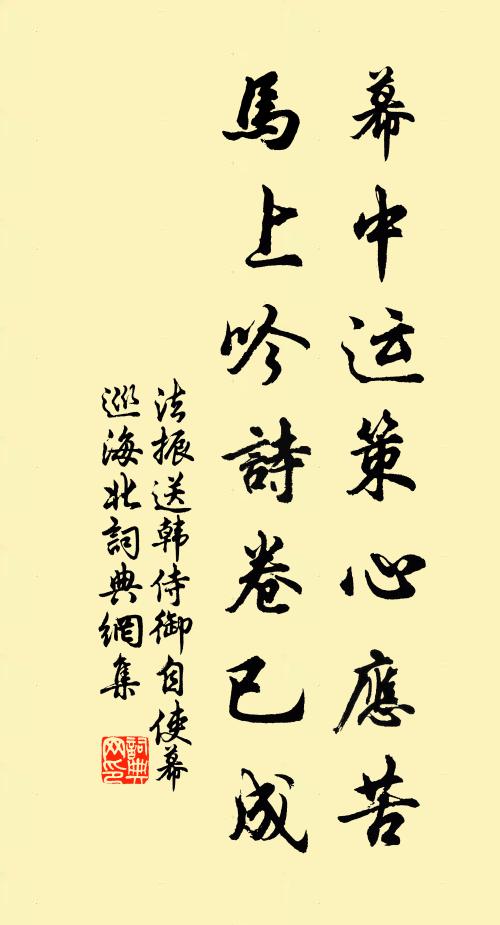 幕中运策心應苦
馬上吟詩卷已成
法振送韩侍御自使幕
巡海北詞典網集
詞典
网印